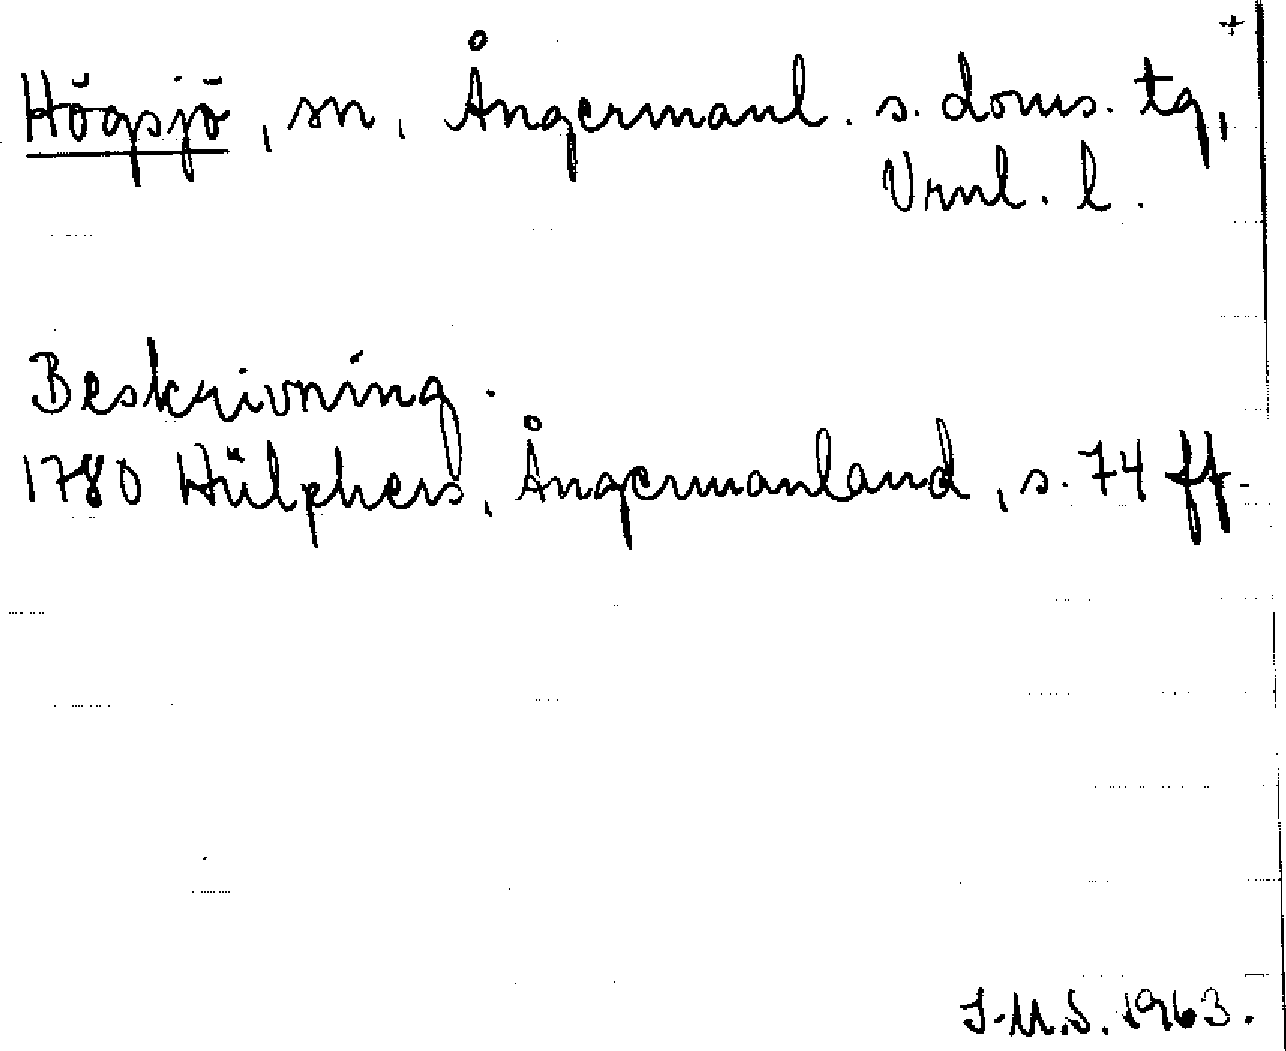 +
Högsjö, sn, Ångermanl. s. doms. tg,
Vrnl. l.
Beskrivning.
1780 Hülphers, Ångermanland, s. 74 ff.
I.M.S. 1963.